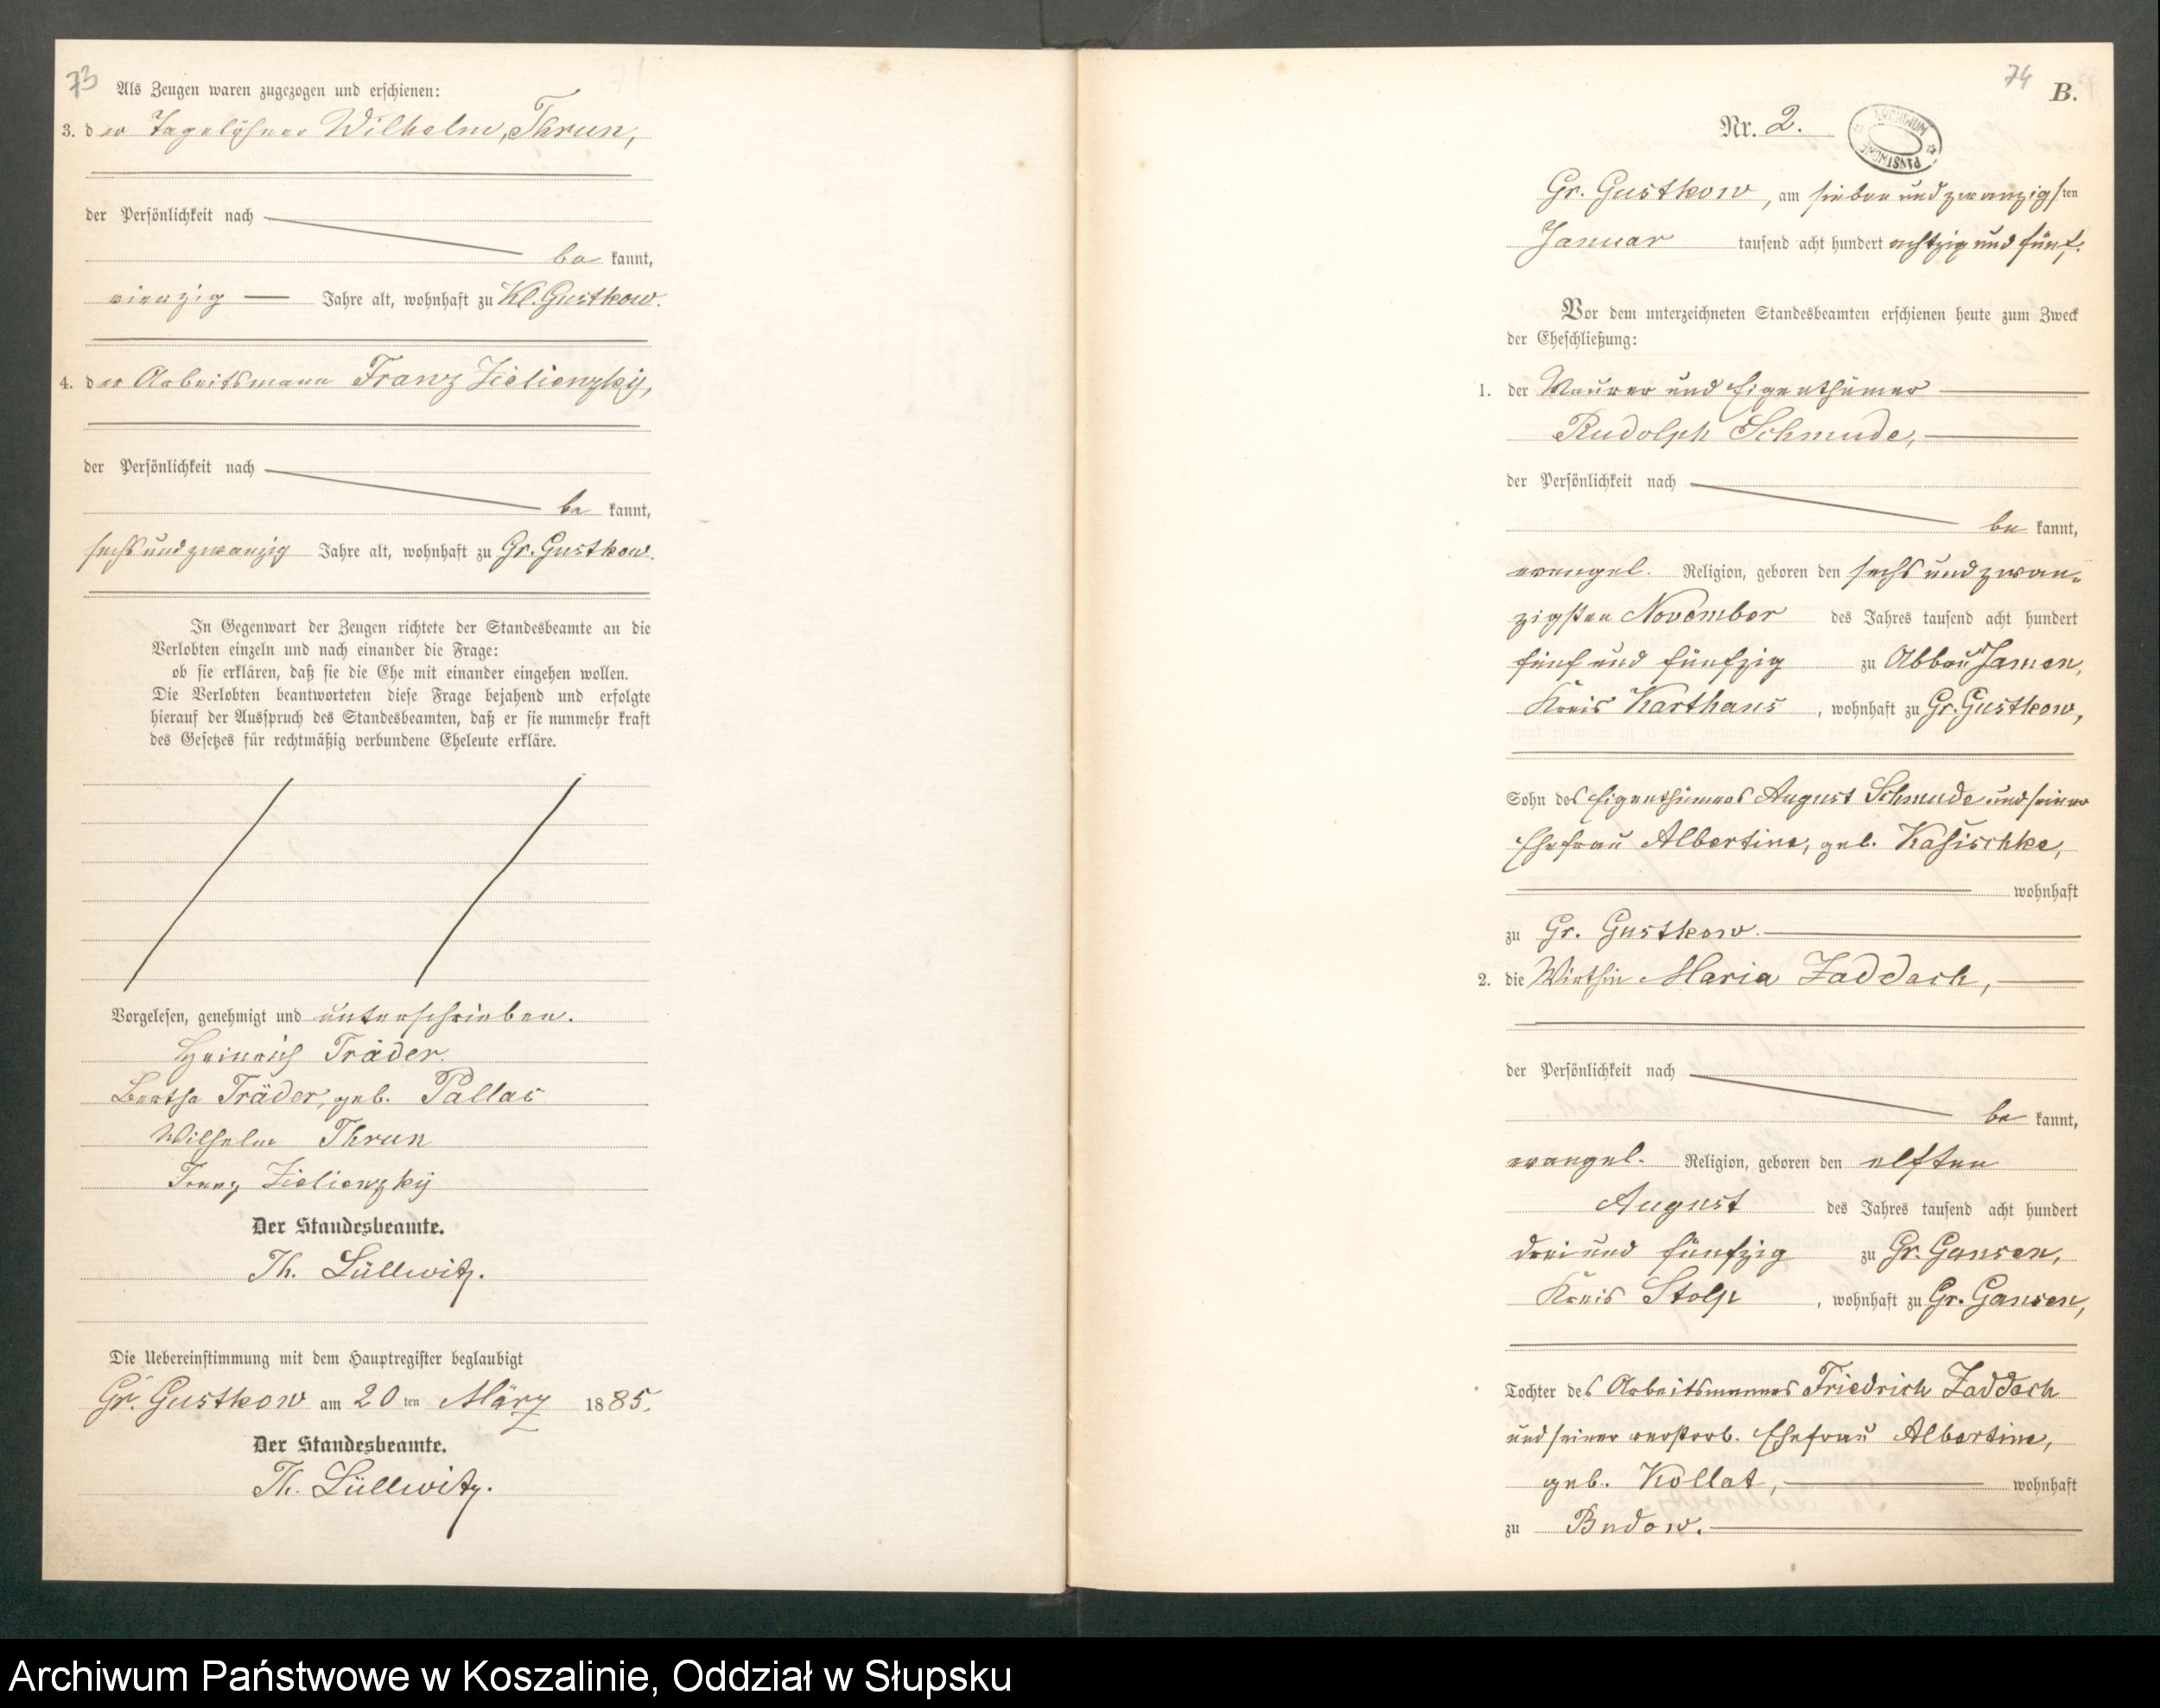 73
Als Zeugen waren zugezogen und erschienen:
3. der Tagelöhner Wilhelm Thrun,
der Persönlichkeit nach
be kannt,
vierzig Jahre alt, wohnhaft zu Kl. Gustkow.
4. der Arbeitsmann Franz Zielienzky,
der Persönlichkeit nach
be kannt,
sechs und zwanzig Jahre alt, wohnhaft zu Gr. Gustkow.
In Gegenwart der Zeugen richtete der Standesbeamte an die
Verlobten einzeln und nach einander die Frage:
ob sie erklären, daß sie die Ehe mit einander eingehen wollen.
Die Verlobten beantworteten diese Frage bejahend und erfolgte
hierauf der Ausspruch des Standesbeamten, daß er sie nunmehr kraft
des Gesetzes für rechtmäßig verbundene Eheleute erkläre.
Vorgelesen, genehmigt und unterschrieben.
Heinrich Träder.
Bertha Träder, geb. Pallas
Wilhelm Thrun
Franz Zielienzky
Der Standesbeamte.
Th. Lüllwitz.
Die Uebereinstimmung mit dem Hauptregister beglaubigt
Gr. Gustkow am 20 ten März 1885.
Der Standesbeamte.
Th. Lüllwitz.
74
B.
Nr. 2.
ARCHIWUM PAŃSTWOWE
Gr. Gustkow, am sieben und zwanzigsten
Januar tausend acht hundert achtzig und fünf.
Vor dem unterzeichneten Standesbeamten erschienen heute zum Zweck
der Eheschließung:
1. der Maurer und Eigenthümer
Rudolph Schmude,
der Persönlichkeit nach
be kannt,
evangel. Religion, geboren den sechs und zwan-
zigsten November des Jahres tausend acht hundert
fünf und fünfzig zu Abbau Jamen,
Kreis Karthaus, wohnhaft zu Gr. Gustkow,
Sohn des Eigenthümers August Schmude und seiner
Ehefrau Albertine, geb. Kasischke,
wohnhaft
zu Gr. Gustkow.
2. die Wirthin Maria Zaddach,
der Persönlichkeit nach
be kannt,
evangel. Religion, geboren den elften
August des Jahres tausend acht hundert
drei und fünfzig zu Gr. Gansen,
Kreis Stolp, wohnhaft zu Gr. Gansen,
Tochter des Arbeitsmannes Friedrich Zaddach
und seiner verstorb. Ehefrau Albertine,
geb. Kollat, wohnhaft
zu Budow.
Archiwum Państwowe w Koszalinie, Oddział w Słupsku